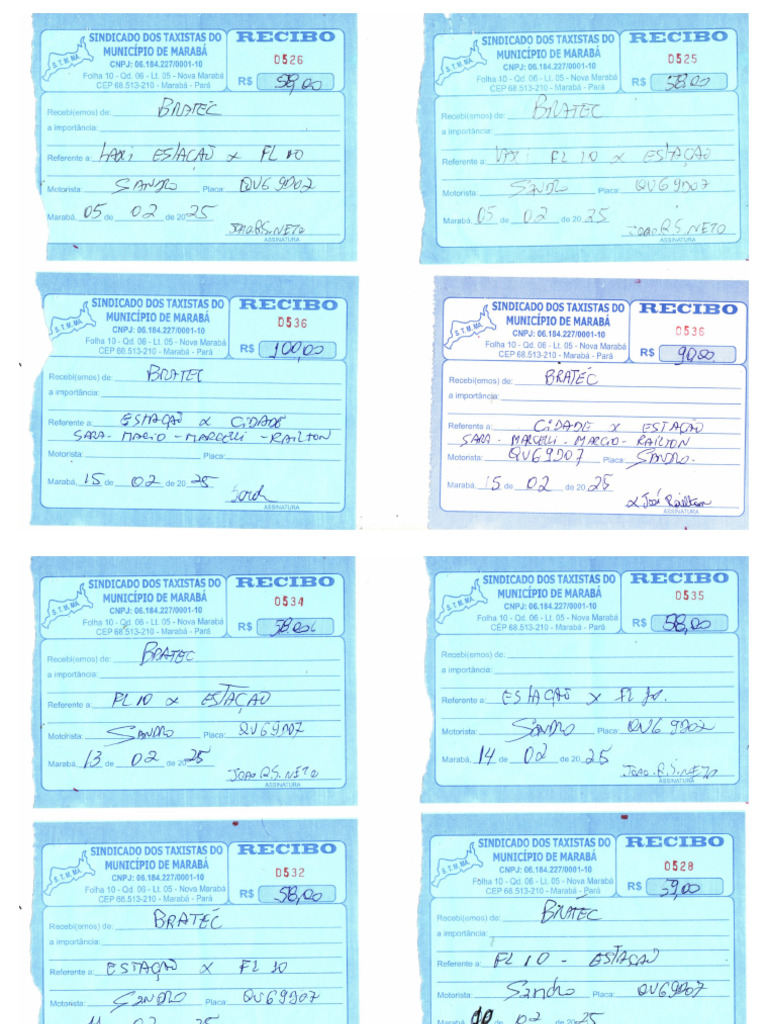 SINDICADO DOS TAXISTAS DO
MUNICÍPIO DE MARABÁ
CNPJ: 06.184.227/0001-10
Folha 10 - Qd. 06 - Lt. 05 - Nova Marabá
CEP 68.513-210 - Marabá - Pará
S.T.M.MA
RECIBO
0526
R$ 58,00
Recebi(emos) de: BRATEC
a importância:
Referente a: taxi ESTAÇÃO x FL 10
Motorista: SANDRO Placa: QVG9D07
Marabá, 05 de 02 de 2025
JOAO.R.S.NETO
ASSINATURA
SINDICADO DOS TAXISTAS DO
MUNICÍPIO DE MARABÁ
CNPJ: 06.184.227/0001-10
Folha 10 - Qd. 06 - Lt. 05 - Nova Marabá
CEP 68.513-210 - Marabá - Pará
S.T.M.MA
RECIBO
0525
R$ 58,00
Recebi(emos) de: BRATEC
a importância:
Referente a: FL 10 x ESTAÇÃO
Motorista: SANDRO Placa: QVG9D07
Marabá, 05 de 02 de 2025
JOAO.R.S.NETO
ASSINATURA
SINDICADO DOS TAXISTAS DO
MUNICÍPIO DE MARABÁ
CNPJ: 06.184.227/0001-10
Folha 10 - Qd. 06 - Lt. 05 - Nova Marabá
CEP 68.513-210 - Marabá - Pará
S.T.M.MA
RECIBO
0536
R$ 100,00
Recebi(emos) de: BRATEC
a importância:
Referente a: ESTAÇÃO x CIDADE
SARA - MARIO - MARCELLI - RAILTON
Motorista: Placa:
Marabá, 15 de 02 de 2025
ASSINATURA
SINDICADO DOS TAXISTAS DO
MUNICÍPIO DE MARABÁ
CNPJ: 06.184.227/0001-10
Folha 10 - Qd. 06 - Lt. 05 - Nova Marabá
CEP 68.513-210 - Marabá - Pará
S.T.M.MA
RECIBO
0536
R$ 90,00
Recebi(emos) de: BRATEC
a importância:
Referente a: CIDADE x ESTAÇÃO
SARA - MARCELLI - MARCIO - RAILTON
Motorista: QVG9D07 Placa: SANDRO.
Marabá, 15 de 02 de 2025
x José Railton
ASSINATURA
SINDICADO DOS TAXISTAS DO
MUNICÍPIO DE MARABÁ
CNPJ: 06.184.227/0001-10
Folha 10 - Qd. 06 - Lt. 05 - Nova Marabá
CEP 68.513-210 - Marabá - Pará
S.T.M.MA
RECIBO
0534
R$ 58,00
Recebi(emos) de: BRATEC
a importância:
Referente a: FL 10 x ESTAÇÃO
Motorista: SANDRO Placa: QVG9D07
Marabá, 13 de 02 de 2025
JOAO.R.S.NETO
ASSINATURA
SINDICADO DOS TAXISTAS DO
MUNICÍPIO DE MARABÁ
CNPJ: 06.184.227/0001-10
Folha 10 - Qd. 06 - Lt. 05 - Nova Marabá
CEP 68.513-210 - Marabá - Pará
S.T.M.MA
RECIBO
0535
R$ 58,00
Recebi(emos) de:
a importância:
Referente a: ESTAÇÃO x FL 10.
Motorista: SANDRO Placa: QVG9D07
Marabá, 14 de 02 de 2025
JOAO.R.S.NETO
ASSINATURA
SINDICADO DOS TAXISTAS DO
MUNICÍPIO DE MARABÁ
CNPJ: 06.184.227/0001-10
Folha 10 - Qd. 06 - Lt. 05 - Nova Marabá
CEP 68.513-210 - Marabá - Pará
S.T.M.MA
RECIBO
0532
R$ 58,00
Recebi(emos) de: BRATEC
a importância:
Referente a: ESTAÇÃO x FL 10
Motorista: SANDRO Placa: QVG9D07
11 02 25
SINDICADO DOS TAXISTAS DO
MUNICÍPIO DE MARABÁ
CNPJ: 06.184.227/0001-10
Folha 10 - Qd. 06 - Lt. 05 - Nova Marabá
CEP 68.513-210 - Marabá - Pará
S.T.M.MA
RECIBO
0528
R$ 59,00
Recebi(emos) de: BRATEC
a importância:
Referente a: FL 10 - ESTAÇÃO
Motorista: Sandro Placa: QVG9D07
Marabá, 10 de 02 de 2025